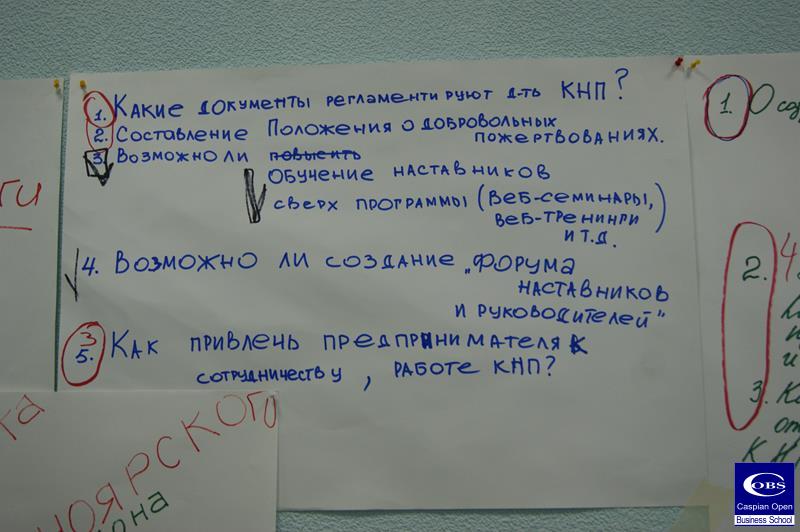 1. Какие документы регламентируют д-ть КНП?
2. Составление Положения о добровольных
пожертвованиях.
3. Возможно ли повысить
обучение наставников
сверх программы (веб-семинары,
веб-тренинги
и т.д.
4. Возможно ли создание „Форума
наставников
и руководителей"
3
5. Как привлечь предпринимателя к
сотрудничеству, работе КНП?
ноярского
она
1. О созд
2.
3. К
от
КН
COBS
Caspian Open
Business School